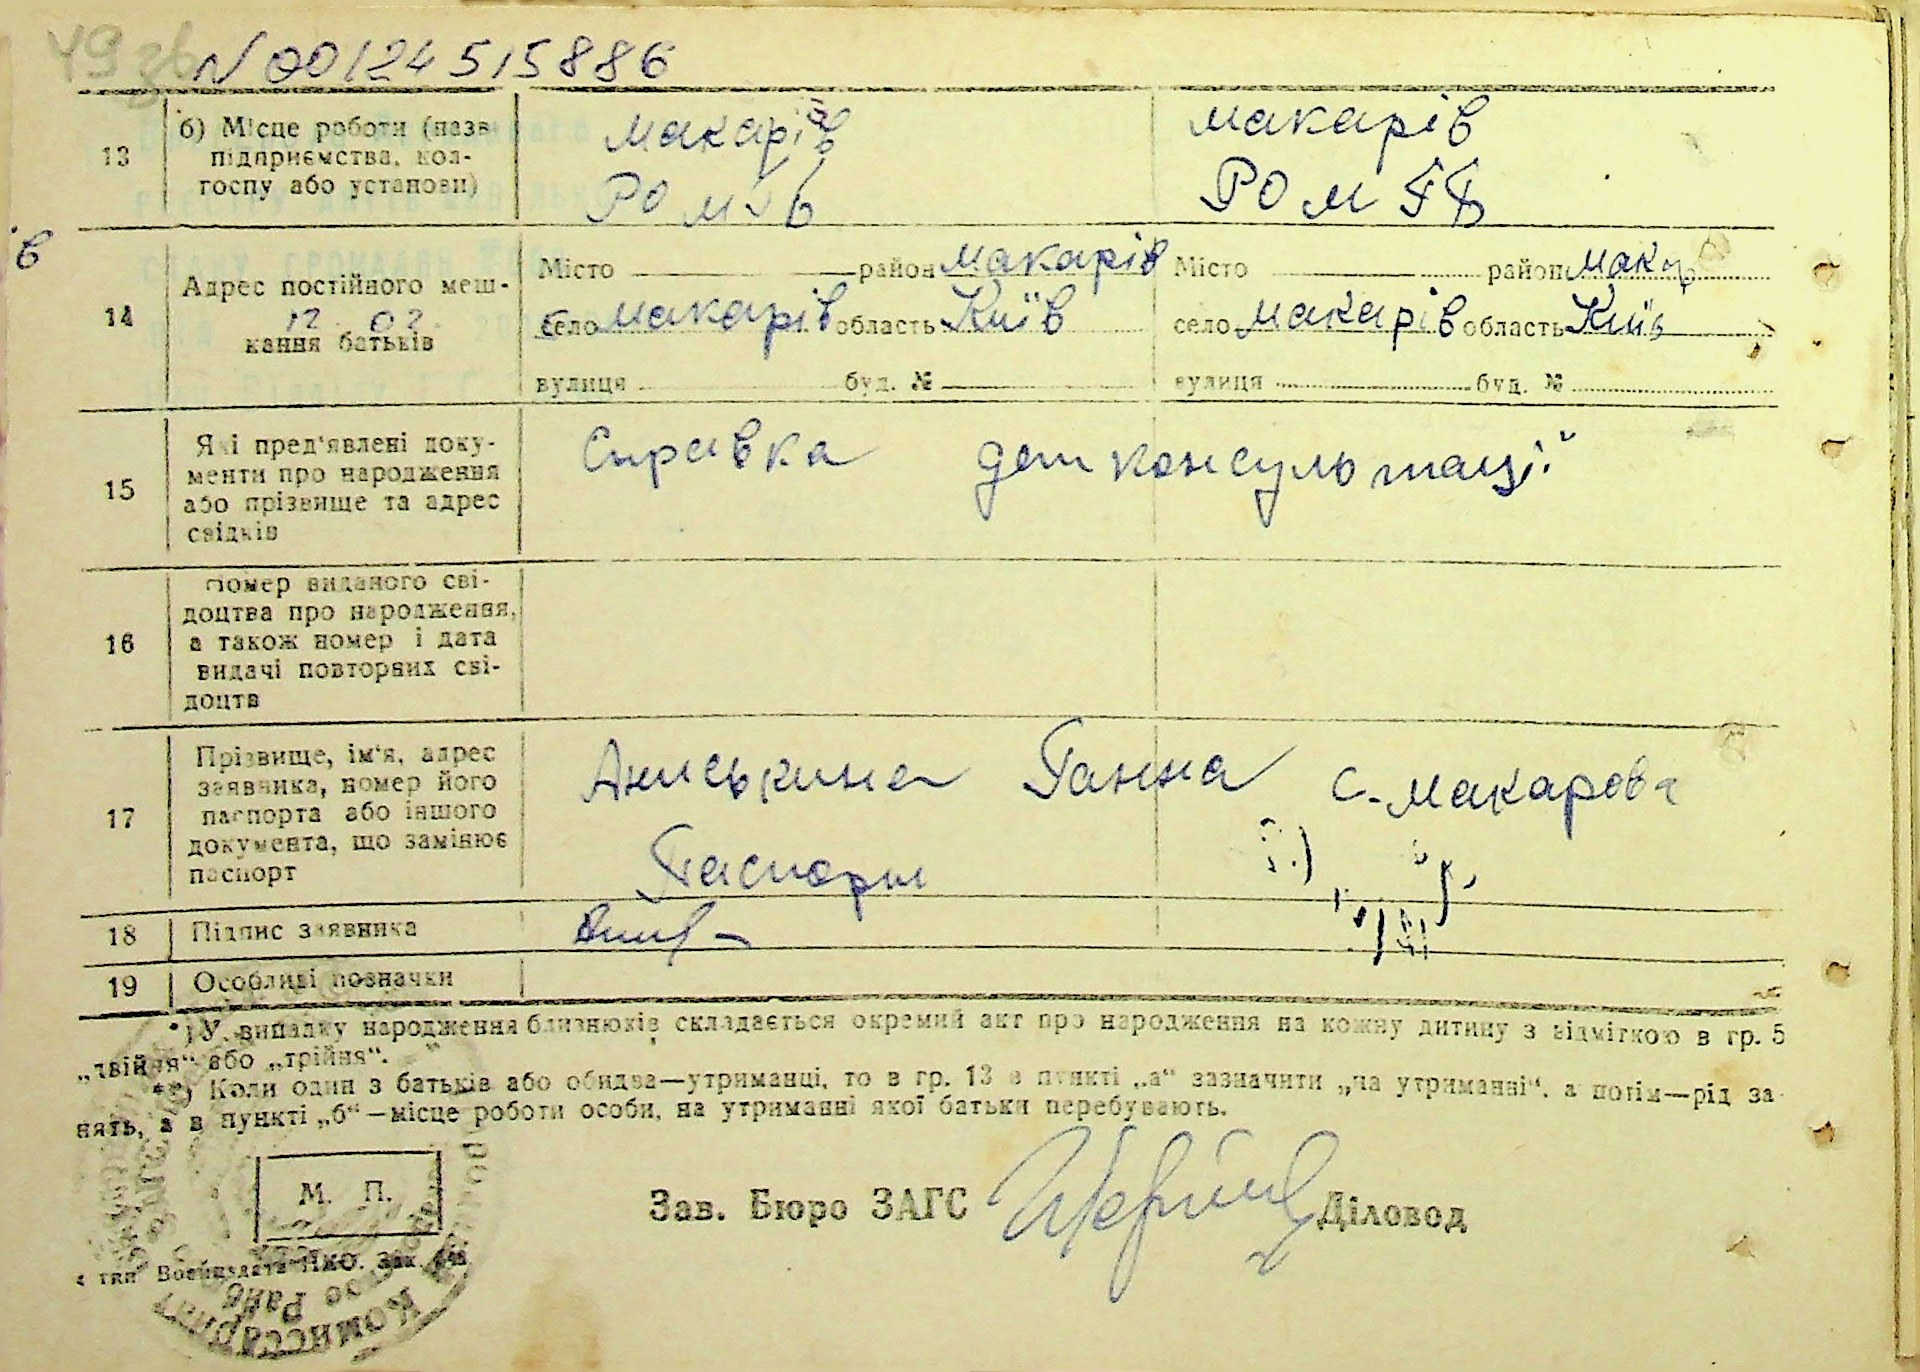 49 зв
N 00124515886
13
б) Місце роботи (назв
підприємства, кол-
госпу або установи)
Макарів
РО м
Макарів
РО м
в
14
Адрес постійного меш-
12 02
кання батьків
Місто район Макарів
село Макарів область Київ
вулиця буд. №
Місто район Макар
село Макарів область Київ
вулиця буд. №
15
Які пред'явлені доку-
менти про народження
або прізвище та адрес
свідків
Справка дет консультації
16
Номер виданого сві-
доцтва про народження,
а також номер і дата
видачі повторних сві-
доцтв
17
Прізвище, ім'я, адрес
заявника, номер його
паспорта або іншого
документа, що замінює
паспорт
Аниськина Ганна с. Макарова
Паспорт
18
Підпис заявника
19
Особливі позначки
*) У випадку народження близнюків складається окремий акт про народження на кожну дитину з відміткою в гр. 5
„двійня“ або „трійня“.
**) Коли один з батьків або обидва—утриманці, то в гр. 13 в пункті „а“ зазначити „на утриманні“, а потім—рід за-
нять, а в пункті „б“—місце роботи особи, на утриманні якої батьки перебувають.
М. П.
Зав. Бюро ЗАГС
Діловод
тип Воениздата НКО. Зак.
Комиссариат